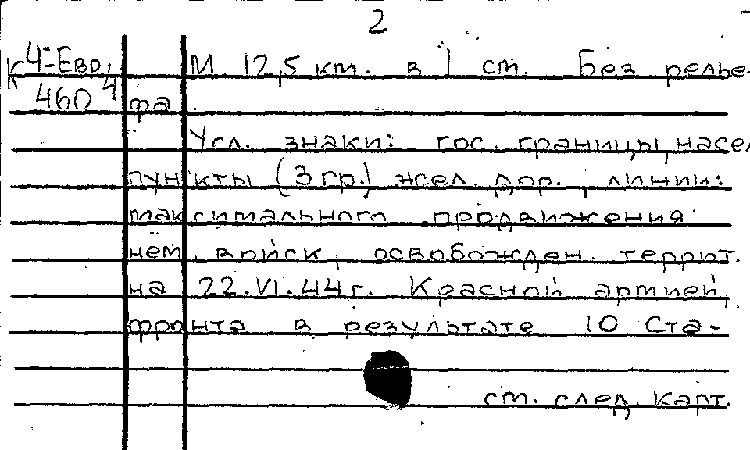 2
К 4-Евр. М 12,5 км. в 1 ст. Без релье-
460 4 фа
Усл. знаки: гос. границы, насел.
пункты (3 гр.) жел. дор., линии:
максимального продвижения
нем. войск, освобожден. террит.
на 22.VI.44г. Красной армией,
фронта в результате 10 Ста-
см. след. карт.